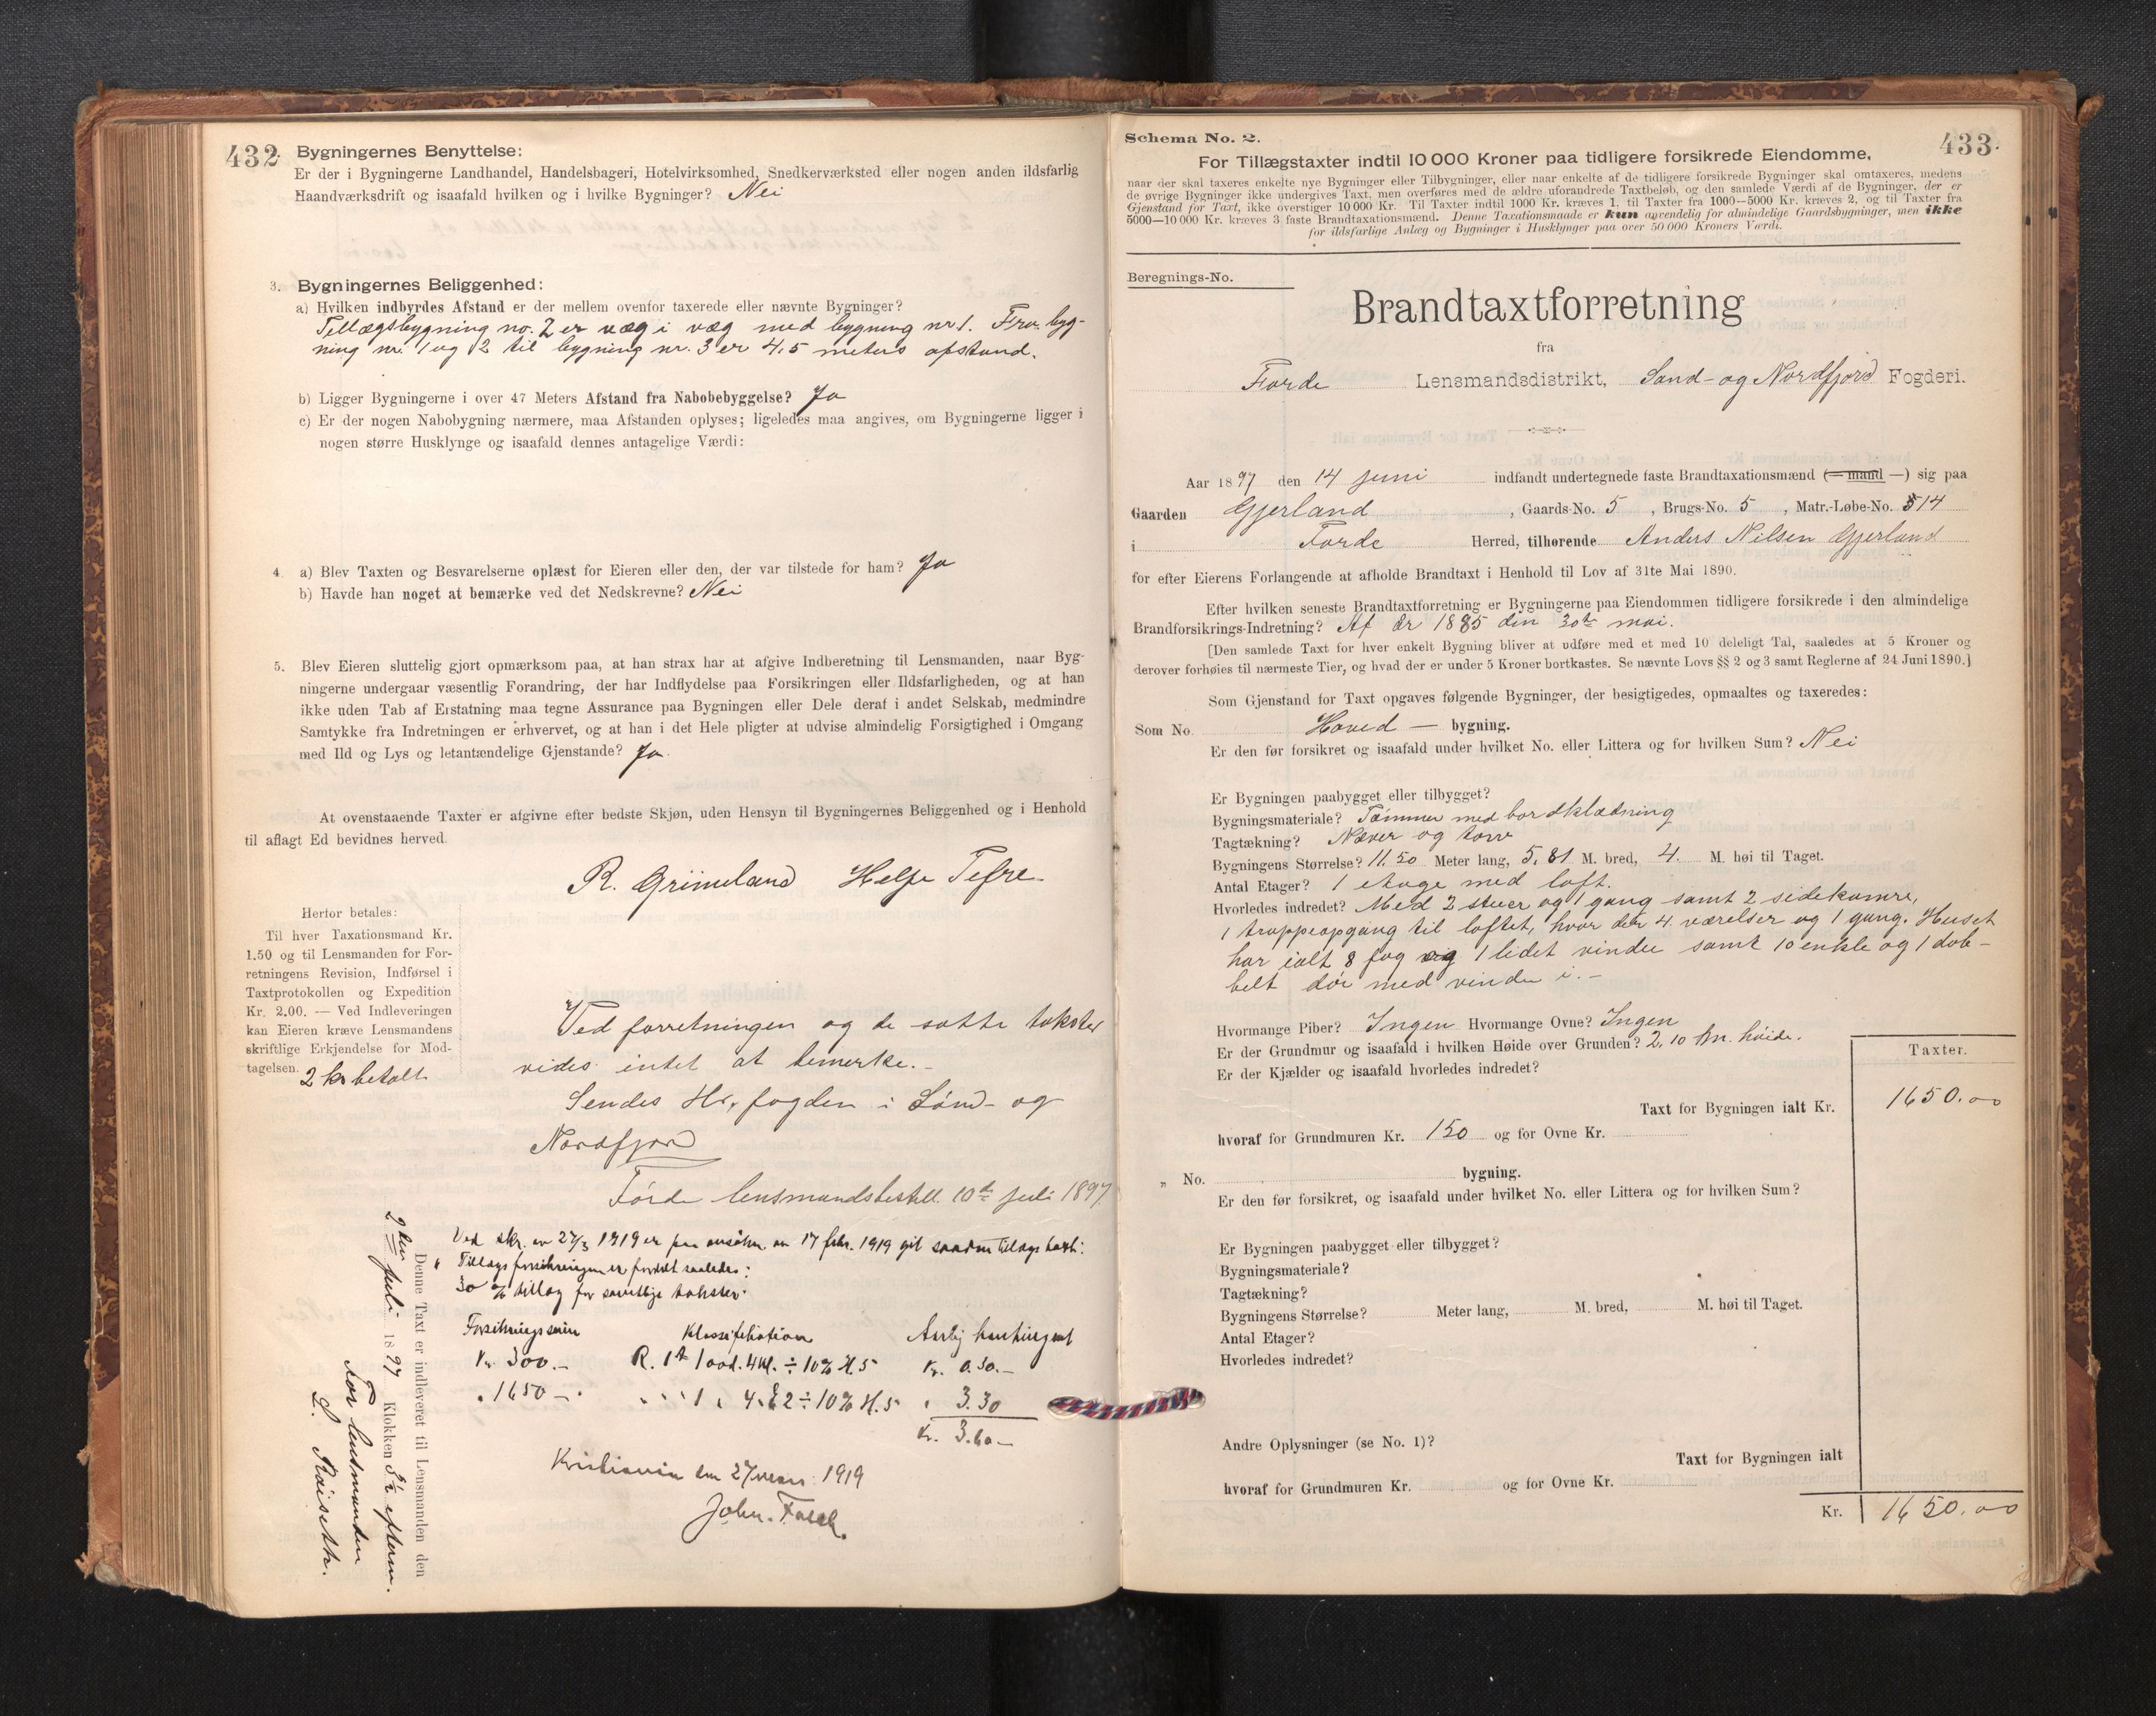 432
Bygningernes Benyttelse:
Er der i Bygningerne Landhandel, Handelsbageri, Hotelvirksomhed, Snedkerværksted eller nogen anden ildsfarlig
Haandværksdrift og isaafald hvilken og i hvilke Bygninger? Nei
3. Bygningernes Beliggenhed:
a) Hvilken indbyrdes Afstand er der mellem ovenfor taxerede eller nævnte Bygninger?
Tillægsbygning no. 2 er væg i væg med bygning nr 1. Fra byg-
ning nr. 1 og 2 til bygning nr. 3 er 4,5 meters afstand.
b) Ligger Bygningerne i over 47 Meters Afstand fra Nabobebyggelse? Ja
c) Er der nogen Nabobygning nærmere, maa Afstanden oplyses; ligeledes maa angives, om Bygningerne ligger i
nogen større Husklynge og isaafald dennes antagelige Værdi:
4. a) Blev Taxten og Besvarelserne oplæst for Eieren eller den, der var tilstede for ham? Ja
b) Havde han noget at bemærke ved det Nedskrevne? Nei
5. Blev Eieren sluttelig gjort opmærksom paa, at han strax har at afgive Indberetning til Lensmanden, naar Byg-
ningerne undergaar væsentlig Forandring, der har Indflydelse paa Forsikringen eller Ildsfarligheden, og at han
ikke uden Tab af Erstatning maa tegne Assurance paa Bygningen eller Dele deraf i andet Selskab, medmindre
Samtykke fra Indretningen er erhvervet, og at han i det Hele pligter at udvise almindelig Forsigtighed i Omgang
med Ild og Lys og letantændelige Gjenstande? Ja.
At ovenstaaende Taxter er afgivne efter bedste Skjøn, uden Hensyn til Bygningernes Beliggenhed og i Henhold
til aflagt Ed bevidnes herved.
R. Grimeland Helje Tefre
Herfor betales:
Til hver Taxationsmand Kr.
1.50 og til Lensmanden for For-
retningens Revision, Indførsel i
Taxtprotokollen og Expedition
Kr. 2.00. — Ved Indleveringen
kan Eieren kræve Lensmandens
skriftlige Erkjendelse for Mod-
tagelsen. 2 kr betalt
Ved forretningen og de satte takster
vides intet at bemerke.-
Sendes Hr. fogden i Sønd- og
Nordfjord
Førde lensmandsbestill. 10de juli 1897.
Denne Taxt er indleveret til Lensmanden den
2den juli 1897 Klokken 3½ efterm.
For lensmanden
L. Røiseth.
Ved skr. av 27/3 1919 er paa ansøkn. av 17 febr. 1919 git saadan tillægstaxt:
" Tillægsforsikringen er fordelt saaledes:
30 % tillæg for samtlige takster.
Forsikringssum Klassifikation Aarlig kontingent
Kr. 300.- R. 1ste 1 avd. 4 kl. ÷ 10% H.5 Kr. 0.30.-
" 1650 -. " " 1 " 4. E 2 ÷ 10% H.5 " 3.30
Kr. 3.60 -
Kristiania den 27 mars 1919
John. Falch.
433.
Schema No. 2.
For Tillægstaxter indtil 10 000 Kroner paa tidligere forsikrede Eiendomme,
naar der skal taxeres enkelte nye Bygninger eller Tilbygninger, eller naar enkelte af de tidligere forsikrede Bygninger skal omtaxeres, medens
de øvrige Bygninger ikke undergives Taxt, men overføres med de ældre uforandrede Taxtbeløb, og den samlede Værdi af de Bygninger, der er
Gjenstand for Taxt, ikke overstiger 10 000 Kr. Til Taxter indtil 1000 Kr. kræves 1, til Taxter fra 1000—5000 Kr. kræves 2, og til Taxter fra
5000—10 000 Kr. kræves 3 faste Brandtaxationsmænd. Denne Taxationsmaade er kun anvendelig for almindelige Gaardsbygninger, men ikke
for ildsfarlige Anlæg og Bygninger i Husklynger paa over 50 000 Kroners Værdi.
Beregnings-No.
Brandtaxtforretning
fra
Førde Lensmandsdistrikt, Sønd- og Nordfjord Fogderi.
Aar 1897 den 14 juni indfandt undertegnede faste Brandtaxationsmænd (— mand —) sig paa
Gaarden Gjerland, Gaards-No. 5, Brugs-No. 5, Matr.-Løbe-No. 514
i Førde Herred, tilhørende Anders Nilsen Gjerland
for efter Eierens Forlangende at afholde Brandtaxt i Henhold til Lov af 31te Mai 1890.
Efter hvilken seneste Brandtaxtforretning er Bygningerne paa Eiendommen tidligere forsikrede i den almindelige
Brandforsikrings-Indretning? Af år 1885 den 30te mai.
[Den samlede Taxt for hver enkelt Bygning bliver at udføre med et med 10 deleligt Tal, saaledes at 5 Kroner og
derover forhøies til nærmeste Tier, og hvad der er under 5 Kroner bortkastes. Se nævnte Lovs §§ 2 og 3 samt Reglerne af 24 Juni 1890.]
Som Gjenstand for Taxt opgaves følgende Bygninger, der besigtigedes, opmaaltes og taxeredes:
Som No. Hoved — bygning.
Er den før forsikret og isaafald under hvilket No. eller Littera og for hvilken Sum? Nei
Er Bygningen paabygget eller tilbygget?
Bygningsmateriale? Tømmer med bordklædning
Tagtækning? Næver og torv
Bygningens Størrelse? 11,50 Meter lang, 5,81 M. bred, 4. M. høi til Taget.
Antal Etager? 1 etage med loft.
Hvorledes indredet? Med 2 stuer og 1 gang samt 2 sidekamre,
1 trappeopgang til loftet, hvor der 4 værelser og 1 gang. Huset
har ialt 8 fag og 1 lidet vindu samt 10 enkle og 1 dob-
belt dør med vindu i.-
Hvormange Piber? Ingen Hvormange Ovne? Ingen
Er der Grundmur og isaafald i hvilken Høide over Grunden? 2,10 m. høide.
Er der Kjælder og isaafald hvorledes indredet?
Taxter.
Taxt for Bygningen ialt Kr. 1650.00
hvoraf for Grundmuren Kr. 150 og for Ovne Kr.
" No. bygning.
Er den før forsikret, og isaafald under hvilket No. eller Littera og for hvilken Sum?
Er Bygningen paabygget eller tilbygget?
Bygningsmateriale?
Tagtækning?
Bygningens Størrelse? Meter lang, M. bred, M. høi til Taget.
Antal Etager?
Hvorledes indredet?
Andre Oplysninger (se No. 1)?
Taxt for Bygningen ialt
hvoraf for Grundmuren Kr. og for Ovne Kr.
Kr. 1650.00